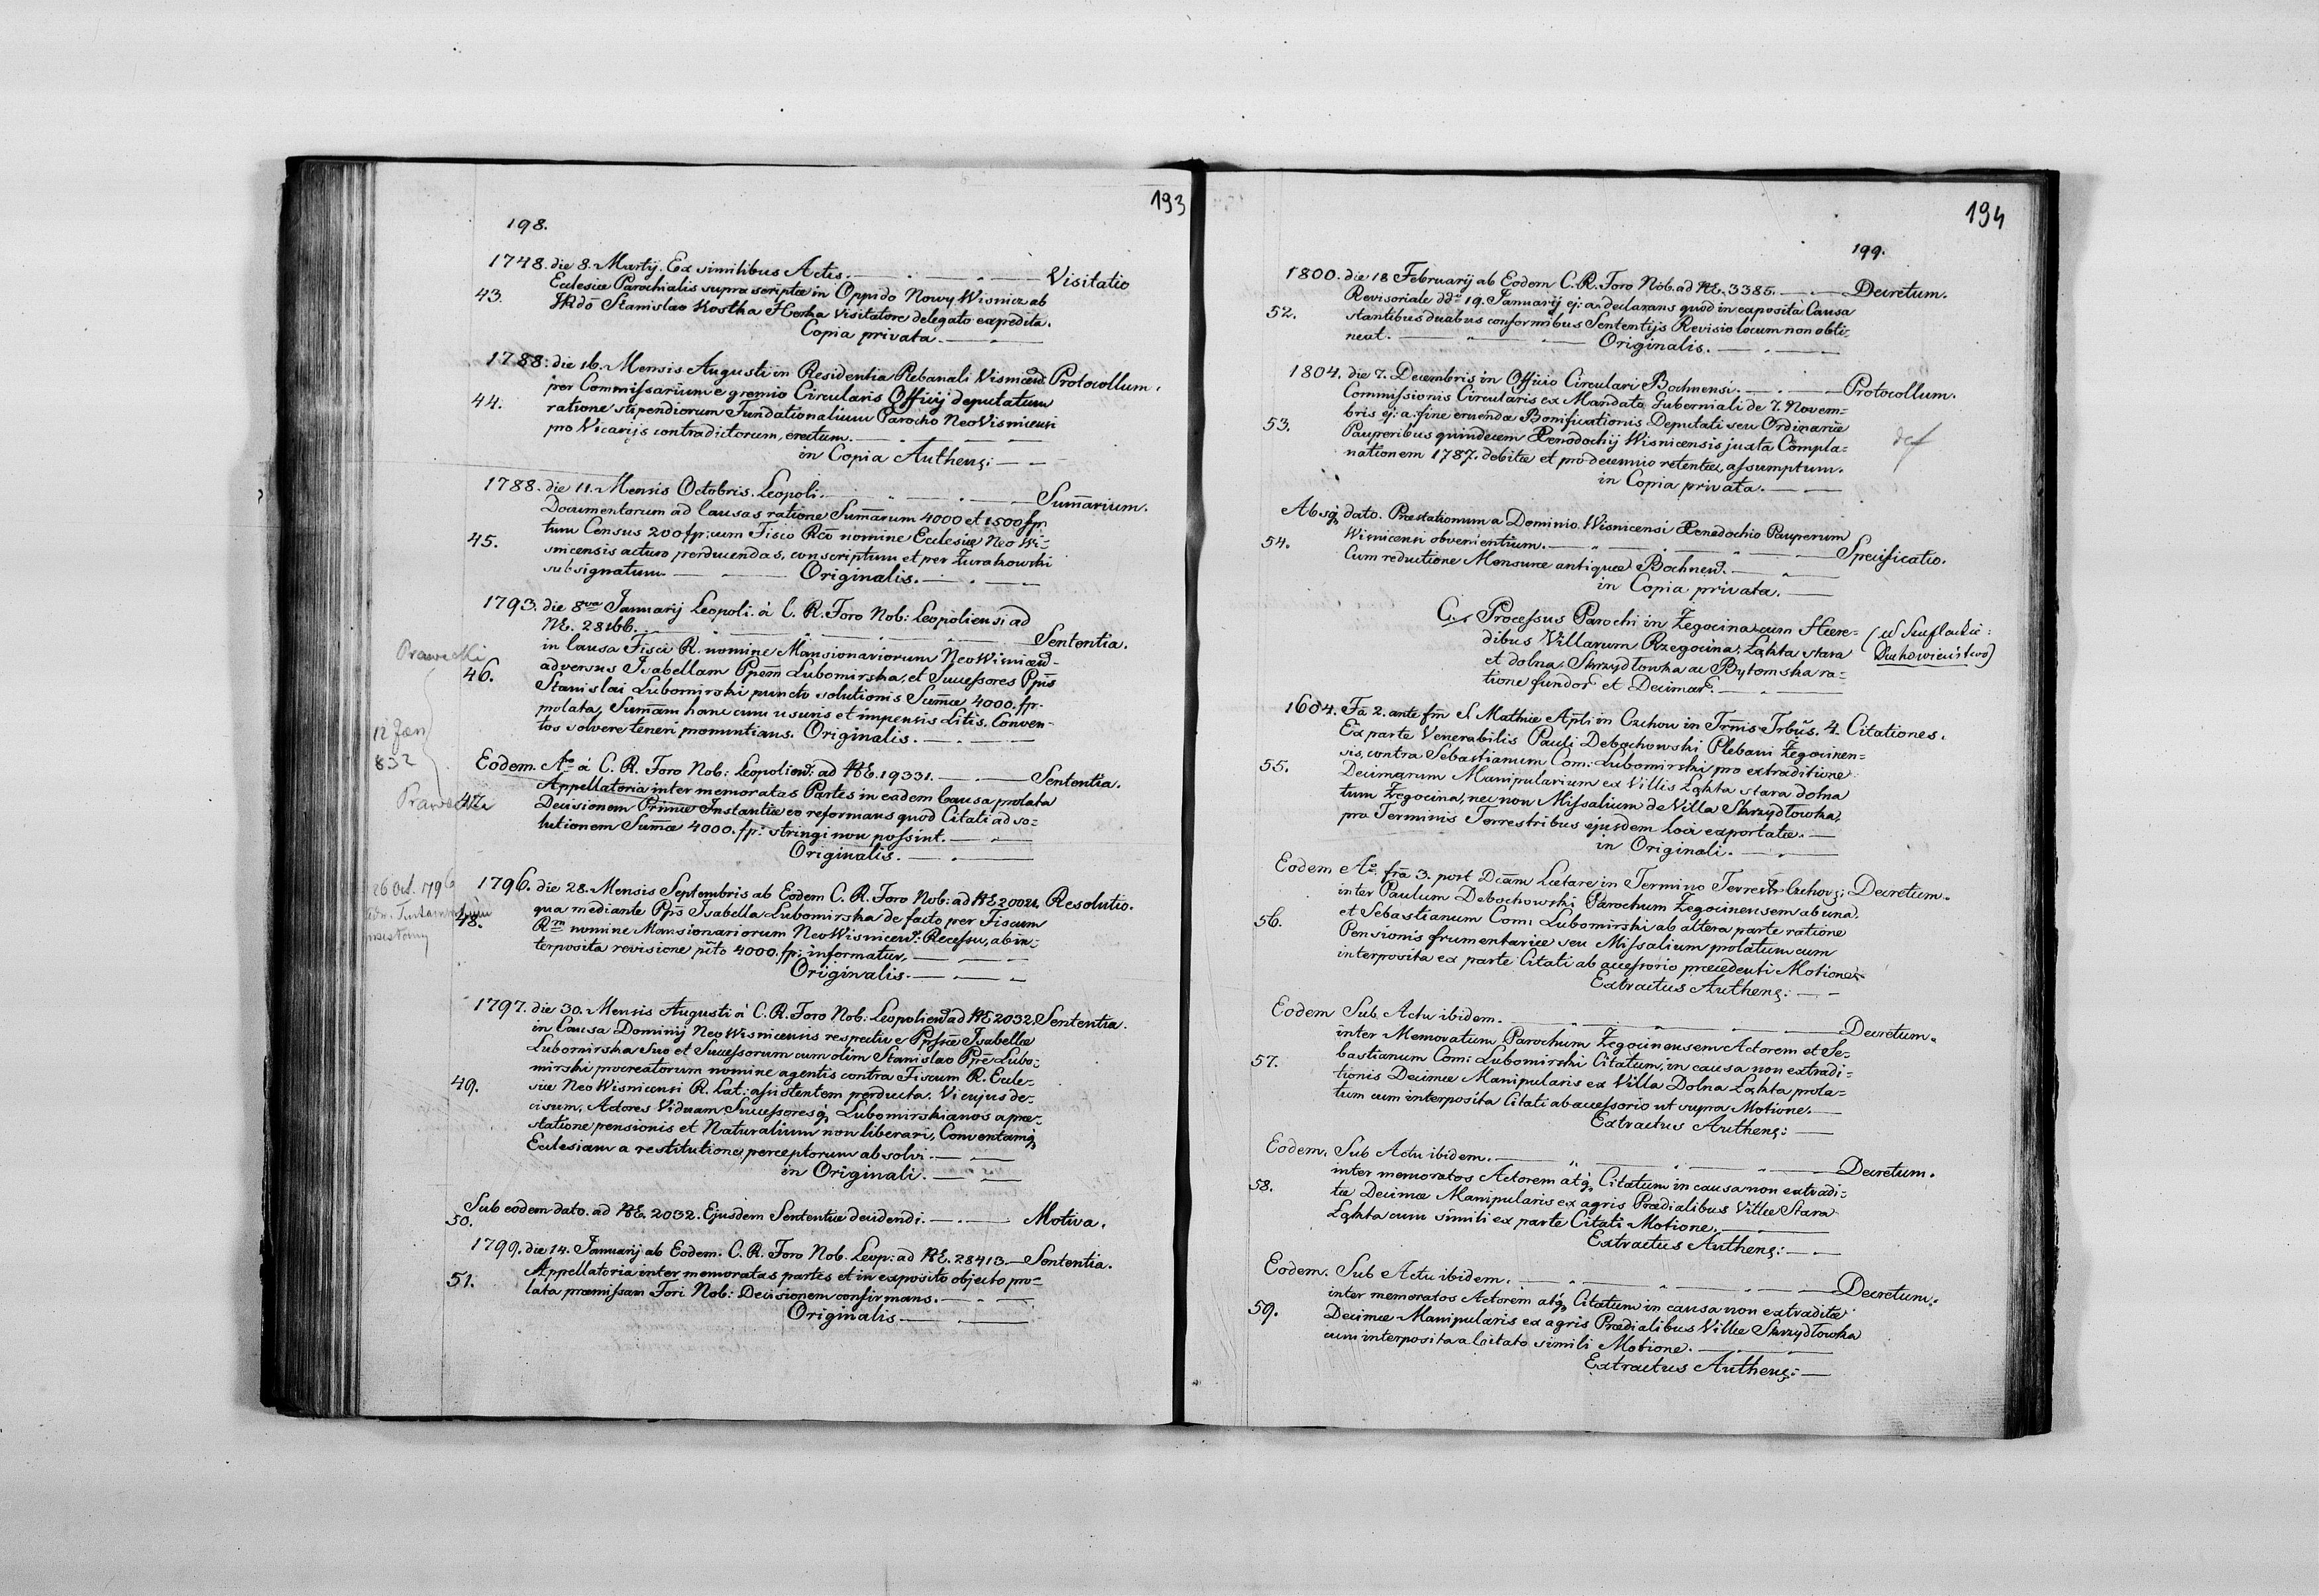 193
198.
1748. die 8. Martij. Ex similibus Actis. Visitatio
Eclesiæ Parochialis supra scriptæ in Oppido Nowy Wisnicz ab
43. Stanislao Kostka Herka Visitatore delegato expedita.
Copia privata.
1788. die 16. Mensis Augusti in Residentia Plebanali Visnicens. Protocollum.
per Commissarium e gremio Circularis Officij deputatum
44. ratione stipendiorum Fundationalium Parocho NeoVisnicensi
pro Vicarijs contradictorum, erectum.
in Copia Authens:
1788. die 11. Mensis Octobris. Leopoli. Sum̄arium.
Documentorum ad Causas ratione Sum̄arum 4000 et 1500 fp.
tum Census 200 fp: cum Fisco Rco nomine Eclesiæ Neo Wi-
45. snicensis acturo perducendas, conscriptum et per Żurakowski
subsignatum. Originalis.
1793. die 8va Januarij Leopoli. à C. R. Foro Nob: Leopoliensi ad
NE. 28166. Sententia.
Prawecki
in Causa Fisci R. nomine Mansionariorum NeoWisnicens-
46. adversus Isabellam Ppem Lubomirska, et Successores Ppis
Stanislai Lubomirski puncto solutionis Sum̄æ 4000. fp.
prolata, Sum̄am hanc cum usuris et impensis Litis. Conven-
12 Jan
tos solvere teneri pronuntians. Originalis.
832
Eodem. Ao à C. R. Foro Nob: Leopoliens: ad NE. 19331. Sententia.
Appellatoria inter memoratas Partes in eadem Causa prolata
47. Decisionem Primæ Instantiæ eo reformans quod Citati ad so-
lutionem Sum̄æ 4000. fp: stringi non possint.
Originalis.
26 Oct. 1796
1796. die 28. Mensis Septembris ab Eodem C. R. Foro Nob: ad NE 20021. Resolutio.
qua mediante Pps Isabella Lubomirska de facto per Fiscum
48. Rm nomine Mansionariorum NeoWisnicens: Recessu, ab in-
terposita revisione pito 4000. fp: informatur.
Originalis.
1797. die 30. Mensis Augusti à C. R. Foro Nob: Leopoliens ad NE 2032. Sententia.
in Causa Dominij NeoWisnicensis respective Ppissæ Isabellæ
Lubomirska Suo et Successorum cum olim Stanislao Ppe Lubo-
mirski procreatorum nomine agentis contra Fiscum R. Ecle-
49. siæ NeoWisnicensi R. Lat: assistentem perducta. Vi cujus de-
cisum, Actores Viduam Successoresq Lubomirskianos a præ-
statione pensionis et Naturalium non liberari, Conventamq
Eclesiam a restitutione perceptorum absolvi.
in Originali.
Sub eodem dato. ad NE. 2032. Ejusdem Sententiæ decidendi. Motiva.
50.
1799. die 14. Januarij ab Eodem. C. R. Foro Nob. Leop: ad NE. 28413. Sententia.
Appellatoria inter memoratas partes et in exposito objecto pro-
51. lata præmissam Fori Nob: Decisionem confirmans.
Originalis
194
199.
1800. die 18 Februarij ab Eodem C. R. Foro Nob. ad NE. 3385. Decretum.
Revisoriale ddo 19. Januarij ej: a: declarans quod in exposita Causa
52. stantibus duabus conformibus Sententijs Revisio locum non obti-
neat. Originalis.
1804. die 7. Decembris in Officio Circulari Bochnensi. Protocollum.
Commissionis Circularis ex Mandato Guberniali de 7. Novem-
bris ej: a: fine eruendæ Bonificationis Deputati seu Ordinariæ
53. Pauperibus quindecem Xenodochij Wisnicensis juxta Compla-
nationem 1787. debitæ et pro decennio retentæ, assumptum.
in Copia privata.
Absq dato. Præstationum a Dominio Wisnicensi Xenodochio Pauperum
54. Wisnicensi obvenientium. Specificatio.
Cum reductione Mensuræ antiquæ Bochnens.
in Copia privata.
C. Processus Parochi in Żegocina cum Hære-
dibus Villarum Rzegocina, Łąkta stara
et dolna, Skrzydłowka ac Bytomska ra-
tione fundor et Decimar.
Duchowieństwo)
1604. Fa 2. ante fm S. Mathiæ Apli in Czchow in Trmis Trbus. 4. Citationes.
Ex parte Venerabilis Pauli Debochowski Plebani Żegocinen-
sis, contra Sebastianum Com: Lubomirski pro extraditione
55. Decimarum Manipularium ex Villis Łąkta stara dolna
tum Żegocina, nec non Missalium de Villa Skrzydłowka,
pro Terminis Terrestribus ejusdem Loci exportatæ.
in Originali.
Eodem Ao. fra 3. post Dcam Lætare in Termino Terrestr: Czchov: Decretum.
inter Paulum Debochowski Parochum Żegocinensem ab una.
et Sebastianum Com: Lubomirski ab altera parte ratione
56. Pensionis frumentariæ seu Missalium prolatum cum
interposita ex parte Citati ab accessorio præcedenti Motione.
Extractus Authens:
Eodem Sub Actu ibidem. Decretum.
inter Memoratum Parochum Żegocinensem Actorem et Se-
57. bastianum Com: Lubomirski Citatum, in causa non extradi-
tionis Decimæ Manipularis ex Villa Dolna Łąkta prola-
tum cum interposita Citati ab accessorio ut supra Motione.
Extractus Authens:
Eodem. Sub Actu ibidem. Decretum.
inter memoratos Actorem atq Citatum in causa non extradi-
58. tæ Decimæ Manipularis ex agris Prædialibus Villæ Stara
Łąkta cum simili ex parte Citati Motione.
Extractus Authens:
Eodem. Sub Actu ibidem. Decretum.
inter memoratos Actorem atq Citatum in causa non extraditæ
59. Decimæ Manipularis ex agris Prædialibus Villæ Skrzydłowka
cum interposita a Citato simili Motione.
Extractus Authens: